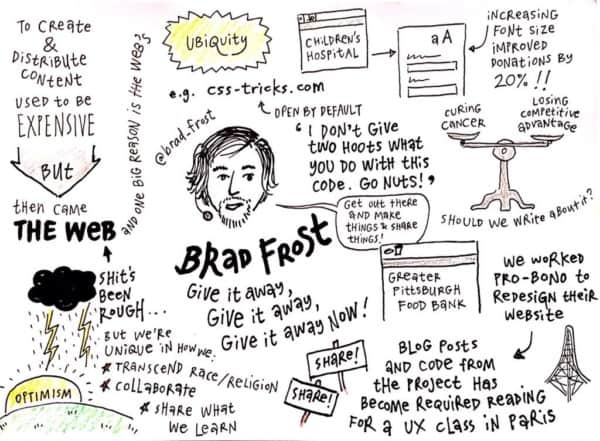 TO CREATE
&
DISTRIBUTE
CONTENT
USED TO BE
EXPENSIVE
BUT
then CAME
THE WEB
AND ONE BIG REASON IS THE WEB?
UBIQUITY
e.g. css-tricks.com
OPEN BY DEFAULT
@brad_frost
'I DON'T GIVE
TWO HOOTS WHAT
YOU DO WITH THIS
CODE. GO NUTS!'
GET OUT THERE
AND MAKE
THINGS & SHARE
THINGS!
BRAD FROST
Give it away,
Give it away,
Give it away NOW!
CHILDREN'S
HOSPITAL
a A
INCREASING
FONT SIZE
IMPROVED
DONATIONS BY
20% !!
CURING
CANCER
LOSING
COMPETITIVE
ADVANTAGE
SHOULD WE WRITE ABOUT IT?
GREATER
PITTSBURGH
FOOD BANK
WE WORKED
PRO-BONO TO
REDESIGN THEIR
WEBSITE
BLOG POSTS
AND CODE FROM
THE PROJECT HAS
BECOME REQUIRED READING
FOR A UX CLASS IN PARIS
SHARE!
SHARE!
SHIT'S
BEEN
ROUGH...
BUT WE'RE
UNIQUE IN HOW WE:
* TRANSCEND RACE/RELIGION
* COLLABORATE
* SHARE WHAT
WE LEARN
OPTIMISM